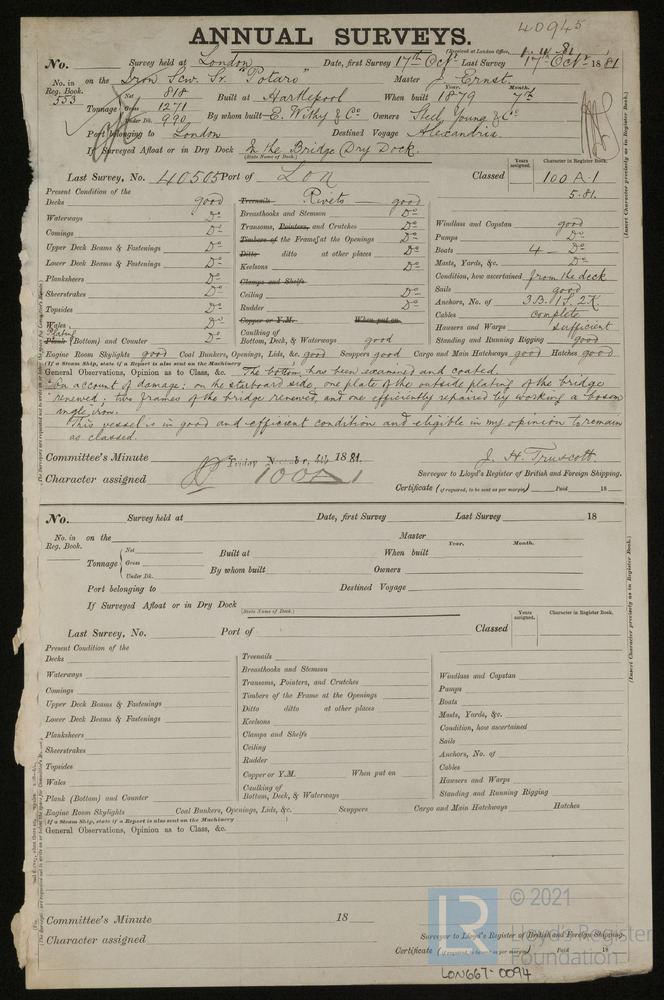 40945
ANNUAL SURVEYS.
(Received at London Office,
No. Survey held at London Date, first Survey 17th Octr Last Survey 17th Octr 1881
No. in on the Iron Scw. Sr. "Potaro" Master J. Ernst.
Reg. Book.
553
Tonnage Net 818 Gross 1271 Under Dk. 990
Built at Hartlepool When built Year. 1879 Month. 7th
By whom built E. Withy & Co. Owners Steel, Young & Co
Port belonging to London Destined Voyage Alexandria.
If Surveyed Afloat or in Dry Dock In the Bridge Dry Dock.
(State Name of Dock.)
Last Survey, No. 40505 Port of Lon Classed Years assigned. Character in Register Book. 100 A.1
5.81.
(Insert Character precisely as in Register Book.)
Present Condition of the
Decks good
Waterways Do
Comings Do
Upper Deck Beams & Fastenings Do
Lower Deck Beams & Fastenings Do
Planksheers Do
Sheerstrakes Do
Topsides Do
Wales Do
Plank (Bottom) and Counter Do
Treenails Rivets good
Breasthooks and Stemson Do
Transoms, Pointers, and Crutches Do
Timbers of the Frame at the Openings Do
Ditto ditto at other places Do
Keelsons Do
Clamps and Shelfs
Ceiling Do
Rudder Do
Copper or Y.M. When put on
Caulking of
Bottom, Deck, & Waterways good
Windlass and Capstan good
Pumps Do
Boats 4 Do
Masts, Yards, &c. Do
Condition, how ascertained from the deck
Sails good
Anchors, No. of 3B. 1S. 2K.
Cables complete
Hawsers and Warps sufficient
Standing and Running Rigging good
Engine Room Skylights good Coal Bunkers, Openings, Lids, &c. good Scuppers good Cargo and Main Hatchways good Hatches good
(If a Steam Ship, state if a Report is also sent on the Machinery
General Observations, Opinion as to Class, &c. The bottom has been examined and coated.
On account of damage; on the starboard side, one plate of the outside plating of the bridge
renewed; two frames of the bridge renewed, and one efficiently repaired by working a bosom
angle iron.
This vessel is in good and efficient condition and eligible in my opinion to remain
as classed.
Committee's Minute Friday November 4th 1881.
J. H. Truscott
Surveyor to Lloyd's Register of British and Foreign Shipping.
Character assigned 100A1
Certificate (if required, to be sent as per margin) Paid 18
No. Survey held at Date, first Survey Last Survey 18
No. in on the Master
Reg. Book. Year. Month.
Tonnage Net Gross Under Dk.
Built at When built
By whom built Owners
Port belonging to Destined Voyage
If Surveyed Afloat or in Dry Dock
(State Name of Dock.)
Last Survey, No. Port of Classed Years assigned. Character in Register Book.
(Insert Character precisely as in Register Book.)
Present Condition of the
Decks
Waterways
Comings
Upper Deck Beams & Fastenings
Lower Deck Beams & Fastenings
Planksheers
Sheerstrakes
Topsides
Wales
Plank (Bottom) and Counter
Treenails
Breasthooks and Stemson
Transoms, Pointers, and Crutches
Timbers of the Frame at the Openings
Ditto ditto at other places
Keelsons
Clamps and Shelfs
Ceiling
Rudder
Copper or Y.M. When put on
Caulking of
Bottom, Deck, & Waterways
Windlass and Capstan
Pumps
Boats
Masts, Yards, &c.
Condition, how ascertained
Sails
Anchors, No. of
Cables
Hawsers and Warps
Standing and Running Rigging
Engine Room Skylights Coal Bunkers, Openings, Lids, &c. Scuppers Cargo and Main Hatchways Hatches
(If a Steam Ship, state if a Report is also sent on the Machinery
General Observations, Opinion as to Class, &c.
Committee's Minute 18
Surveyor to Lloyd's Register of British and Foreign Shipping.
Character assigned
Certificate (if required, to be sent as per margin) Paid 18
© 2021
LR
Lloyd's Register
Foundation
LON667-0094